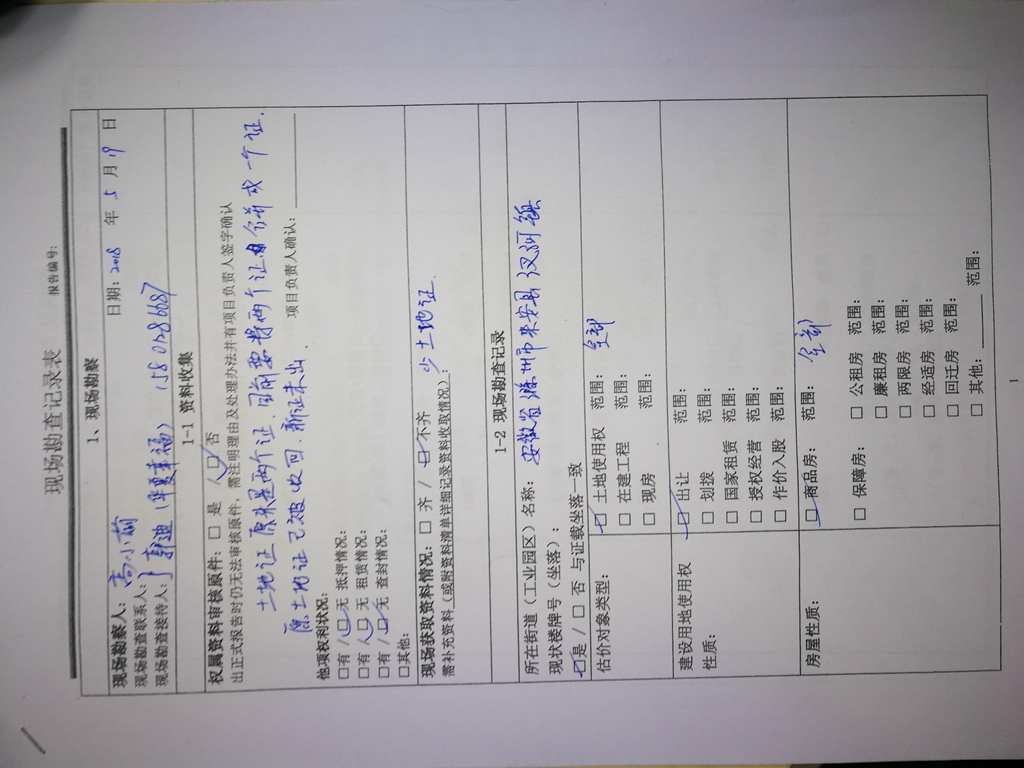 现场勘查记录表
报告编号:
1、现场勘察
现场勘察人: 高小萌 日期: 2018 年 5 月 19 日
现场勘查联系人:
现场勘查接待人: 郭迪（华夏幸福）
1-1 资料收集
权属资料审核原件: □ 是 / □ 否
出正式报告时仍无法审核原件，需注明理由及处理办法并有项目负责人签字确认
土地证原来是两个证，目前要将两个证合并成一个证.
原土地证已被收回，新证未出. 项目负责人确认:
他项权利状况:
□有 / □无 抵押情况:
□有 / □无 租赁情况:
□有 / □无 查封情况:
□其他:
现场获取资料情况: □ 齐 / □ 不齐 少土地证.
需补充资料（或附资料清单详细记录资料收取情况）:
1-2 现场勘查记录
所在街道（工业园区）名称: 安徽省滁州市来安县汊河镇
现状楼牌号（坐落）:
□是 / □ 否 与证载坐落一致
估价对象类型: □ 土地使用权 范围: 全部
□ 在建工程 范围:
□ 现房 范围:
建设用地使用权性质: □ 出让 范围:
□ 划拨 范围:
□ 国家租赁 范围:
□ 授权经营 范围:
□ 作价入股 范围:
房屋性质: □ 商品房: 范围: 全部
□ 保障房: □ 公租房 范围:
□ 廉租房 范围:
□ 两限房 范围:
□ 经适房 范围:
□ 回迁房 范围:
□ 其他: 范围:
1